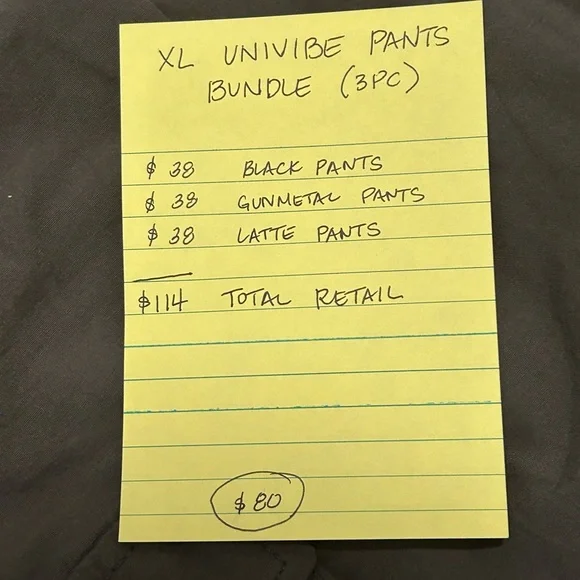 XL UNIVIBE PANTS
BUNDLE (3PC)
$ 38 BLACK PANTS
$ 38 GUNMETAL PANTS
$ 38 LATTE PANTS
$114 TOTAL RETAIL
$80